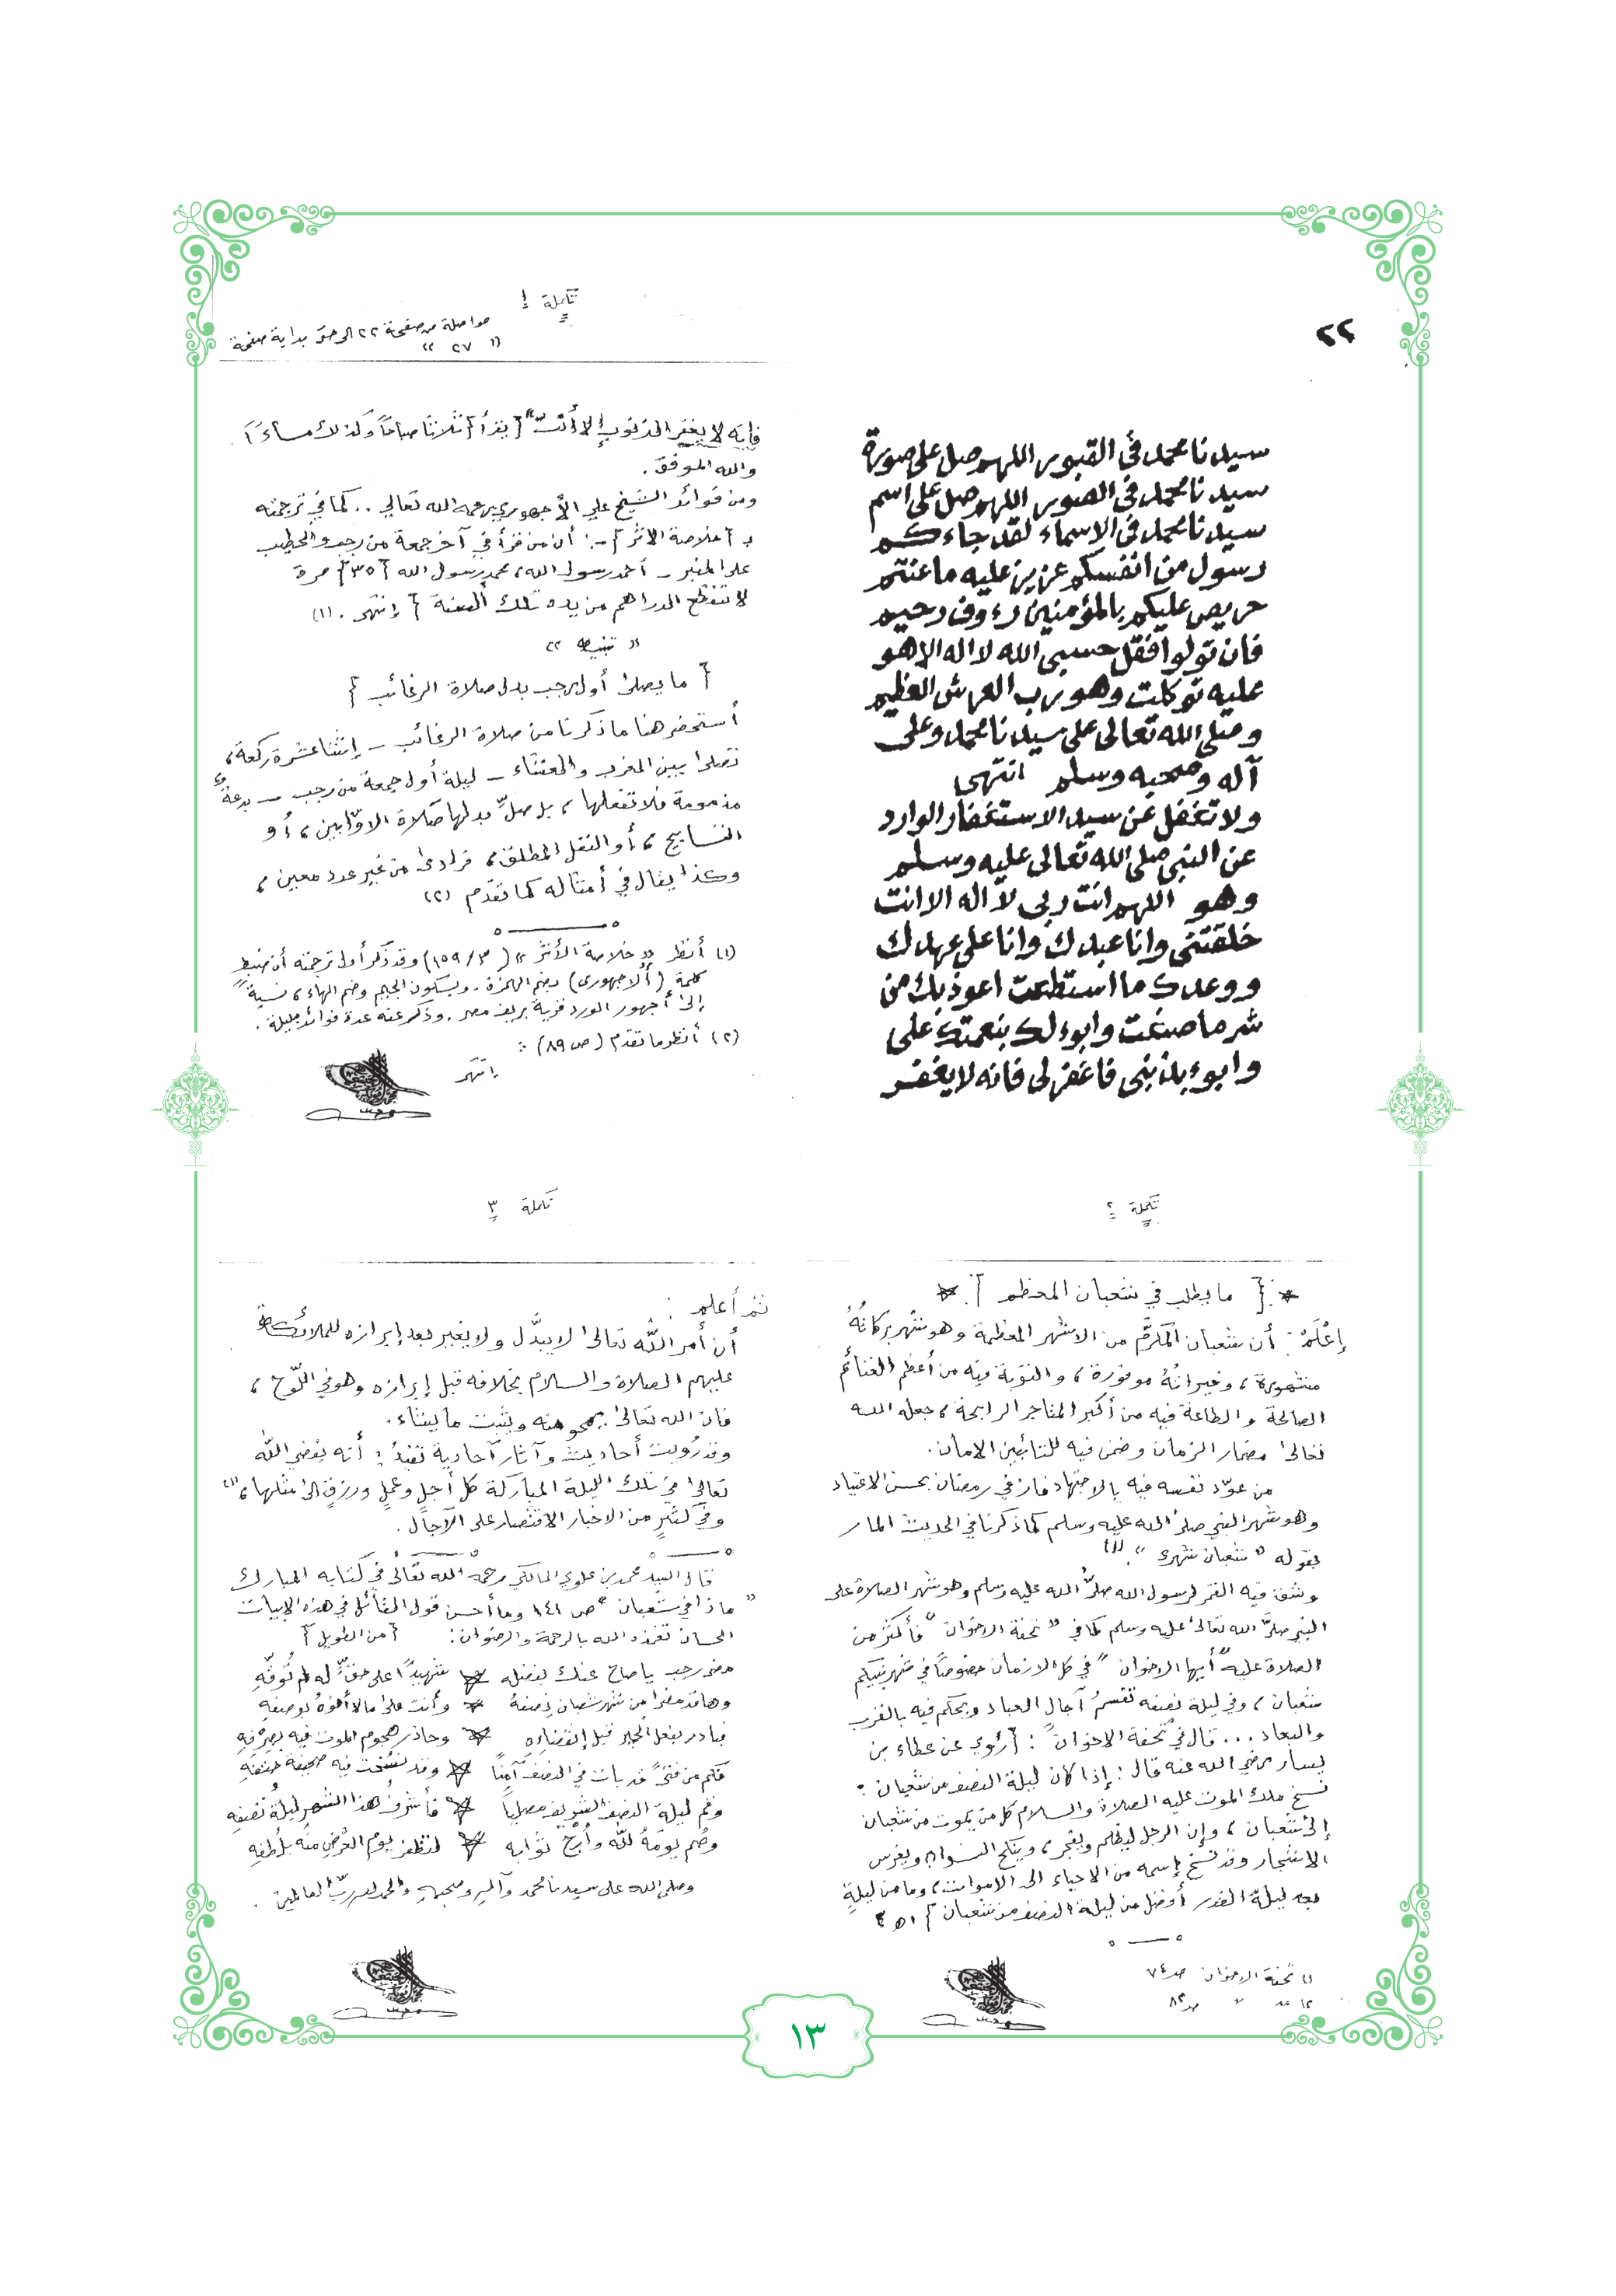 ٢٢
سيدنا محمد في القبور اللهم صل على صورة
سيدنا محمد في الصور اللهم صل على اسم
سيدنا محمد في الاسماء لقد جاءكم
رسول من انفسكم عزيز عليه ما عنتم
حريص عليكم بالمؤمنين رءوف رحيم
فان تولوا فقل حسبي الله لا اله الا هو
عليه توكلت وهو رب العرش العظيم
وصلى الله تعالى على سيدنا محمد وعلى
آله وصحبه وسلم انتهى
ولا تغفل عن سيد الاستغفار الوارد
عن النبي صلى الله تعالى عليه وسلم
وهو اللهم انت ربي لا اله الا انت
خلقتني وانا عبدك وانا على عهدك
ووعدك ما استطعت اعوذ بك من
شر ما صنعت وابوء لك بنعمتك علي
وابوء بذنبي فاغفر لي فانه لا يغفر
تكملة ١
مواصلة من صفحة ٢٢ الى حتى بداية صفحة
« ٢٧ »
فإنه لا يغفر الذنوب إلا أنت" [يقرأ] ثلاثا صباحاً وكذلك مساءً.
والله الموفق.
ومن فوائد الشيخ علي الأجهوري رحمه الله تعالى .. كما في ترجمته
بـ [خلاصة الاثر] -: أن من قرأ في آخر جمعة من رجب والخطيب
على المنبر - أحمد رسول الله، محمد رسول الله [٣٥] مرة
لا تنقطع الدراهم من يده تلك السنة] إنتهى. (١)
« تنبيه »
[ما يصلى أول رجب بدل صلاة الرغائب]
أستحضر هنا ما ذكرنا من صلاة الرغائب - إثنتا عشرة ركعة،
تصلى بين المغرب والعشاء - ليلة أول جمعة من رجب - بدعةٌ
مذمومة فلا تفعلها، بل صلِّ بدلها صلاة الاوّابين، أو
التسابيح، أو النفل المطلق، فرادى من غير عدد معين،
وكذا يقال في أمثاله كما تقدّم (٢)
(١) أنظر « خلاصة الأثر » (٣/١٥٩) وقد ذكر أول ترجمته أن ضبط
كلمة (ألاجهوري) بضم الهمزة. وبسكون الجيم وضم الهاء، نسبةً
إلى أجهور الورد قرية بريف مصر. وذكر عنه عدة فوائد جليلة.
(٢) أنظر ما تقدم (ص ٨٩) :
إنتهى
تكملة ٢
[ما يطلب في شعبان المعظم]
إعْلَمْ: أن شعبان المكرَّم من الاشهر المعظمة وهو شهر بركاتُهُ
مشهورة، وخيراتُهُ موفورة، والتوبة فيه من أعظم الغنائم
الصالحة والطاعة فيه من أكبر المتاجر الرابحة، جعله الله
تعالى مضمار الزمان وضمن فيه للتائبين الامان.
من عوّد نفسه فيه بالاجتهاد فاز في رمضان بحسن الاعتياد
وهو شهر النبي صلى الله عليه وسلم كما ذكرنا في الحديث المار
بقوله « شعبان شهري ».(١)
وشق فيه القمر لرسول الله صلى الله عليه وسلم وهو شهر الصلاة على
النبي صلى الله تعالى عليه وسلم كما في « تحفة الاخوان » فأكثر من
الصلاة عليه "أيها الاخوان" في كل الازمان خصوصاً في شهر نبيكم
شعبان، وفي ليلة نصفه تقسمُ آجال العباد ويحكم فيه بالقرب
والبعاد ... قال في "تحفة الاخوان": [رُوي عن عطاء بن
يسار رضي الله عنه قال: إذا كان ليلة النصف من شعبان:
نسخ ملك الموت عليه الصلاة والسلام كل من يموت من شعبان
إلى شعبان، وإن الرجل ليظلم ويفجر، وينكح النسوان ويغرس
الاشجار وقد نسخ إسمه من الاحياء الى الاموات، وما من ليلةٍ
بعد ليلة القدر أفضل من ليلة النصف من شعبان] ١هـ ٢
(١) تحفة الاخوان صـ٧٤
(٢) صـ٨٣
تكملة ٣
ثم أعلم:
أن أمر اللّه تعالى لا يبدَّل ولا يغير بعد إبرازه للملائكة
عليهم الصلاة والسلام بخلافه قبل إبرازه وهو في اللّوح،
فان الله تعالى يمحو منه ويثبت ما يشاء.
وقد رُويت أحاديث وآثار آحادية تفيدُ: أنه يقضي اللّه
تعالى في تلك الليلة المباركة كل أجلٍ وعملٍ ورزقٍ الى مثلها، (١)
وفي كثيرٍ من الاخبار الاقتصار على الآجال.
قال السيد محمد بن علوي المالكي رحمه الله تعالى في كتابه المبارك
« ماذا في شعبان » ص ١٤١ وما أحسن قول القائل في هذه الابيات
الحسان تغمده الله بالرحمة والرضوان: [من الطويل]
مضى رجب يا صاح عنك بفضله شهيداً على حقٍّ له لم تُوفّهِ
وها قد مضى من شهر شعبان نِصفهُ وأنت على ما لا أفوهُ بوصفهِ
فبادر بفعل الخير قبل إنقضائِهِ وحاذر هجوم الموت فيه بصرْفِهِ
فكم من فتىً قد بات في النصف آمناً وقد نُسخت فيه صحيفة حتفهِ
وقم ليلة النصف الشريف مصلياً فأشرفُ هذا الشهرِ ليلةُ نصفِهِ
وصُم يومَهُ للّه وأرجُ ثوابه لتظفر يوم العَرْضِ منه بلُطفِهِ
وصلى الله على سيدنا محمد وآلهِ وصحبهِ والحمد لله ربّ العالمين.
١٣